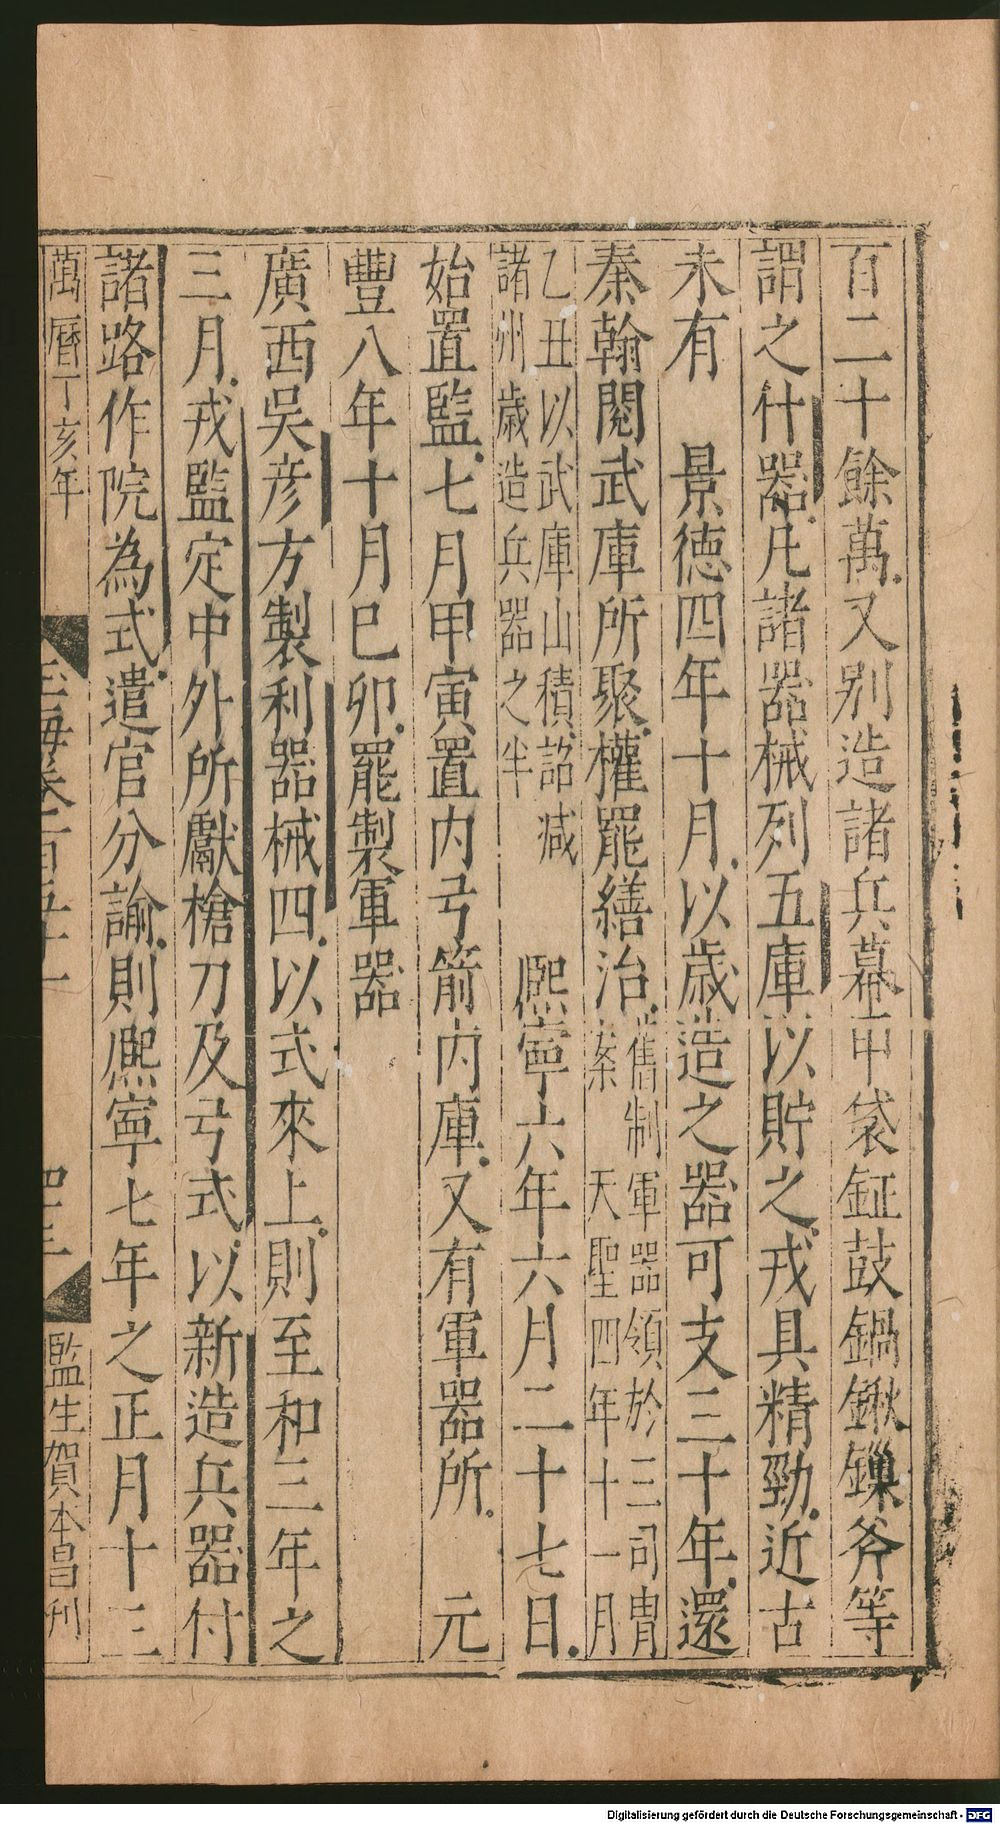 百二十餘萬又别造諸兵幕甲袋鉦鼓鍋鍬钁斧等
謂之什器凡諸器械列五庫以貯之戎具精勁近古
未有　景德四年十月以歲造之器可支三十年還
秦翰閱武庫所聚權罷繕治舊制軍器領於三司冑
案　天聖四年十一月
乙丑以武庫山積詔減
諸州歲造兵器之半　熈寧六年六月二十七日
始置監七月甲寅置内弓箭内庫又有軍器所　元
豐八年十月巳卯罷製軍器
廣西吳彦方製利器械四以式來上則至和三年之
三月戎監定中外所獻槍刀及弓式以新造兵器付
諸路作院為式遣官分諭則熈寧七年之正月十三
萬曆丁亥年　玉海卷一百五十一　監生賀本昌刊
Digitalisierung gefördert durch die Deutsche Forschungsgemeinschaft - DFG